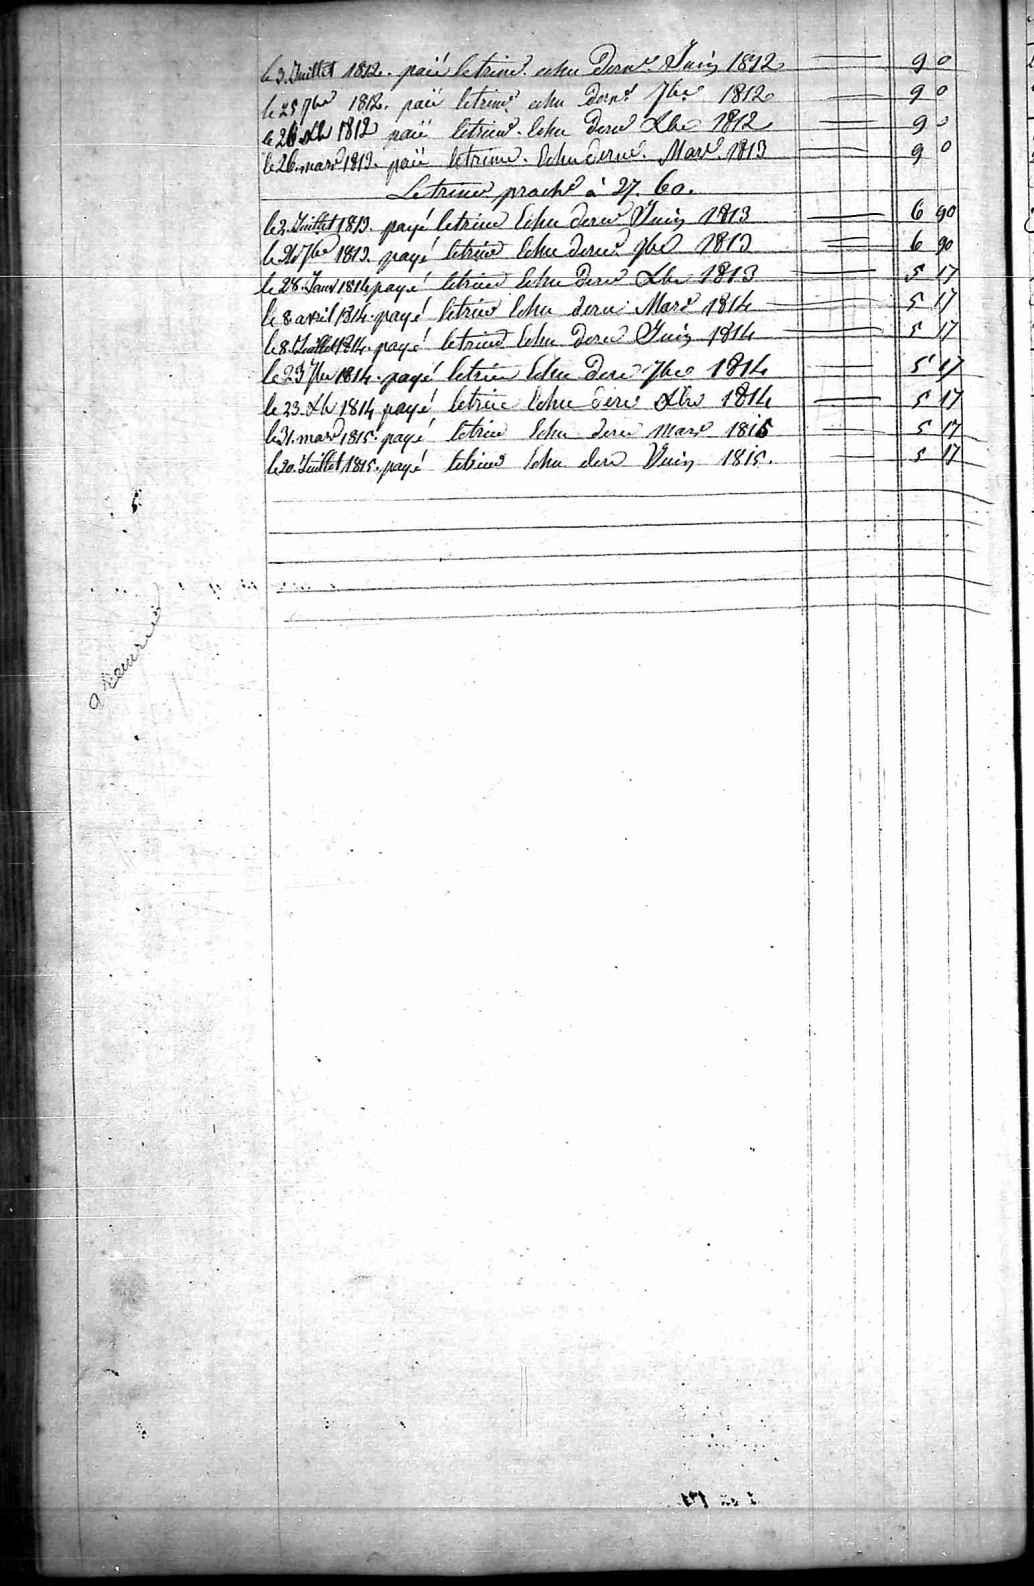 le 3. Juillet 1812. paié le trime. echu dern.e Juin 1812 9 0
le 25 7bre 1812. paié le trime. echu dern.e 7bre 1812 9 0
le 26 Xbre 1812 paié le trime. Echu derne Xbre 1812 9 0
le 26. mars 1813. paié le trime. Echu derne. Mars 1813 9 0
Le trime proche à 27 60.
le 2. Juillet 1813. payé le trime Echu derne Juin 1813 6 90
le 7bre 1813. payé le trime Echu derne 7bre 1813 6 90
le 28. Janv 1814 payé le trime Echu derne Xbre 1813 5 17
le 8 avril 1814. payé le trime Echu derne Mars 1814 5 17
le 8. Juillet 1814. payé le trime Echu derne Juin 1814 5 17
le 23 7bre 1814. payé le trime Echu derne 7bre 1814 5 17
le 23. Xbre 1814 payé le trime Echu derne Xbre 1814 5 17
le 31. mars 1815. payé le trime Echu derne mars 1815 5 17
le 20. Juillet 1815. payé le trime Echu derne Juin 1815. 5 17